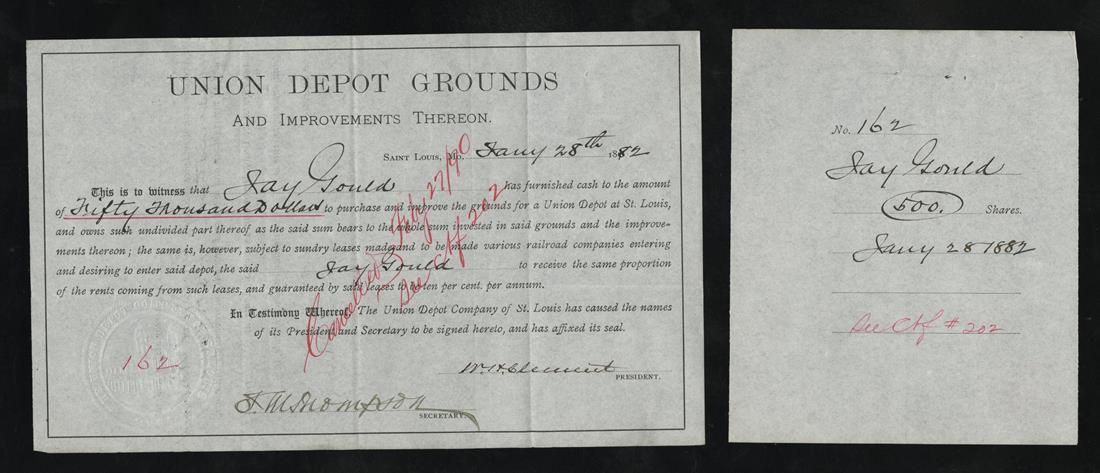 UNION DEPOT GROUNDS
AND IMPROVEMENTS THEREON.
SAINT LOUIS, MO. Jany 28th 1882
This is to witness that Jay Gould has furnished cash to the amount
of Fifty Thousand Dollars to purchase and improve the grounds for a Union Depot at St. Louis,
and owns such undivided part thereof as the said sum bears to the whole sum invested in said grounds and the improve-
ments thereon; the same is, however, subject to sundry leases made and to be made various railroad companies entering
and desiring to enter said depot, the said Jay Gould to receive the same proportion
of the rents coming from such leases, and guaranteed by said leases to be ten per cent. per annum.
In Testimony Whereof, The Union Depot Company of St. Louis has caused the names
of its President and Secretary to be signed hereto, and has affixed its seal.
Cancelled Feby 27/90
See Ctf 202
162
W. H. Clement
PRESIDENT.
J. M. Thompson
SECRETARY.
No. 162
Jay Gould
500. Shares.
Jany 28 1882
See Ctf # 202